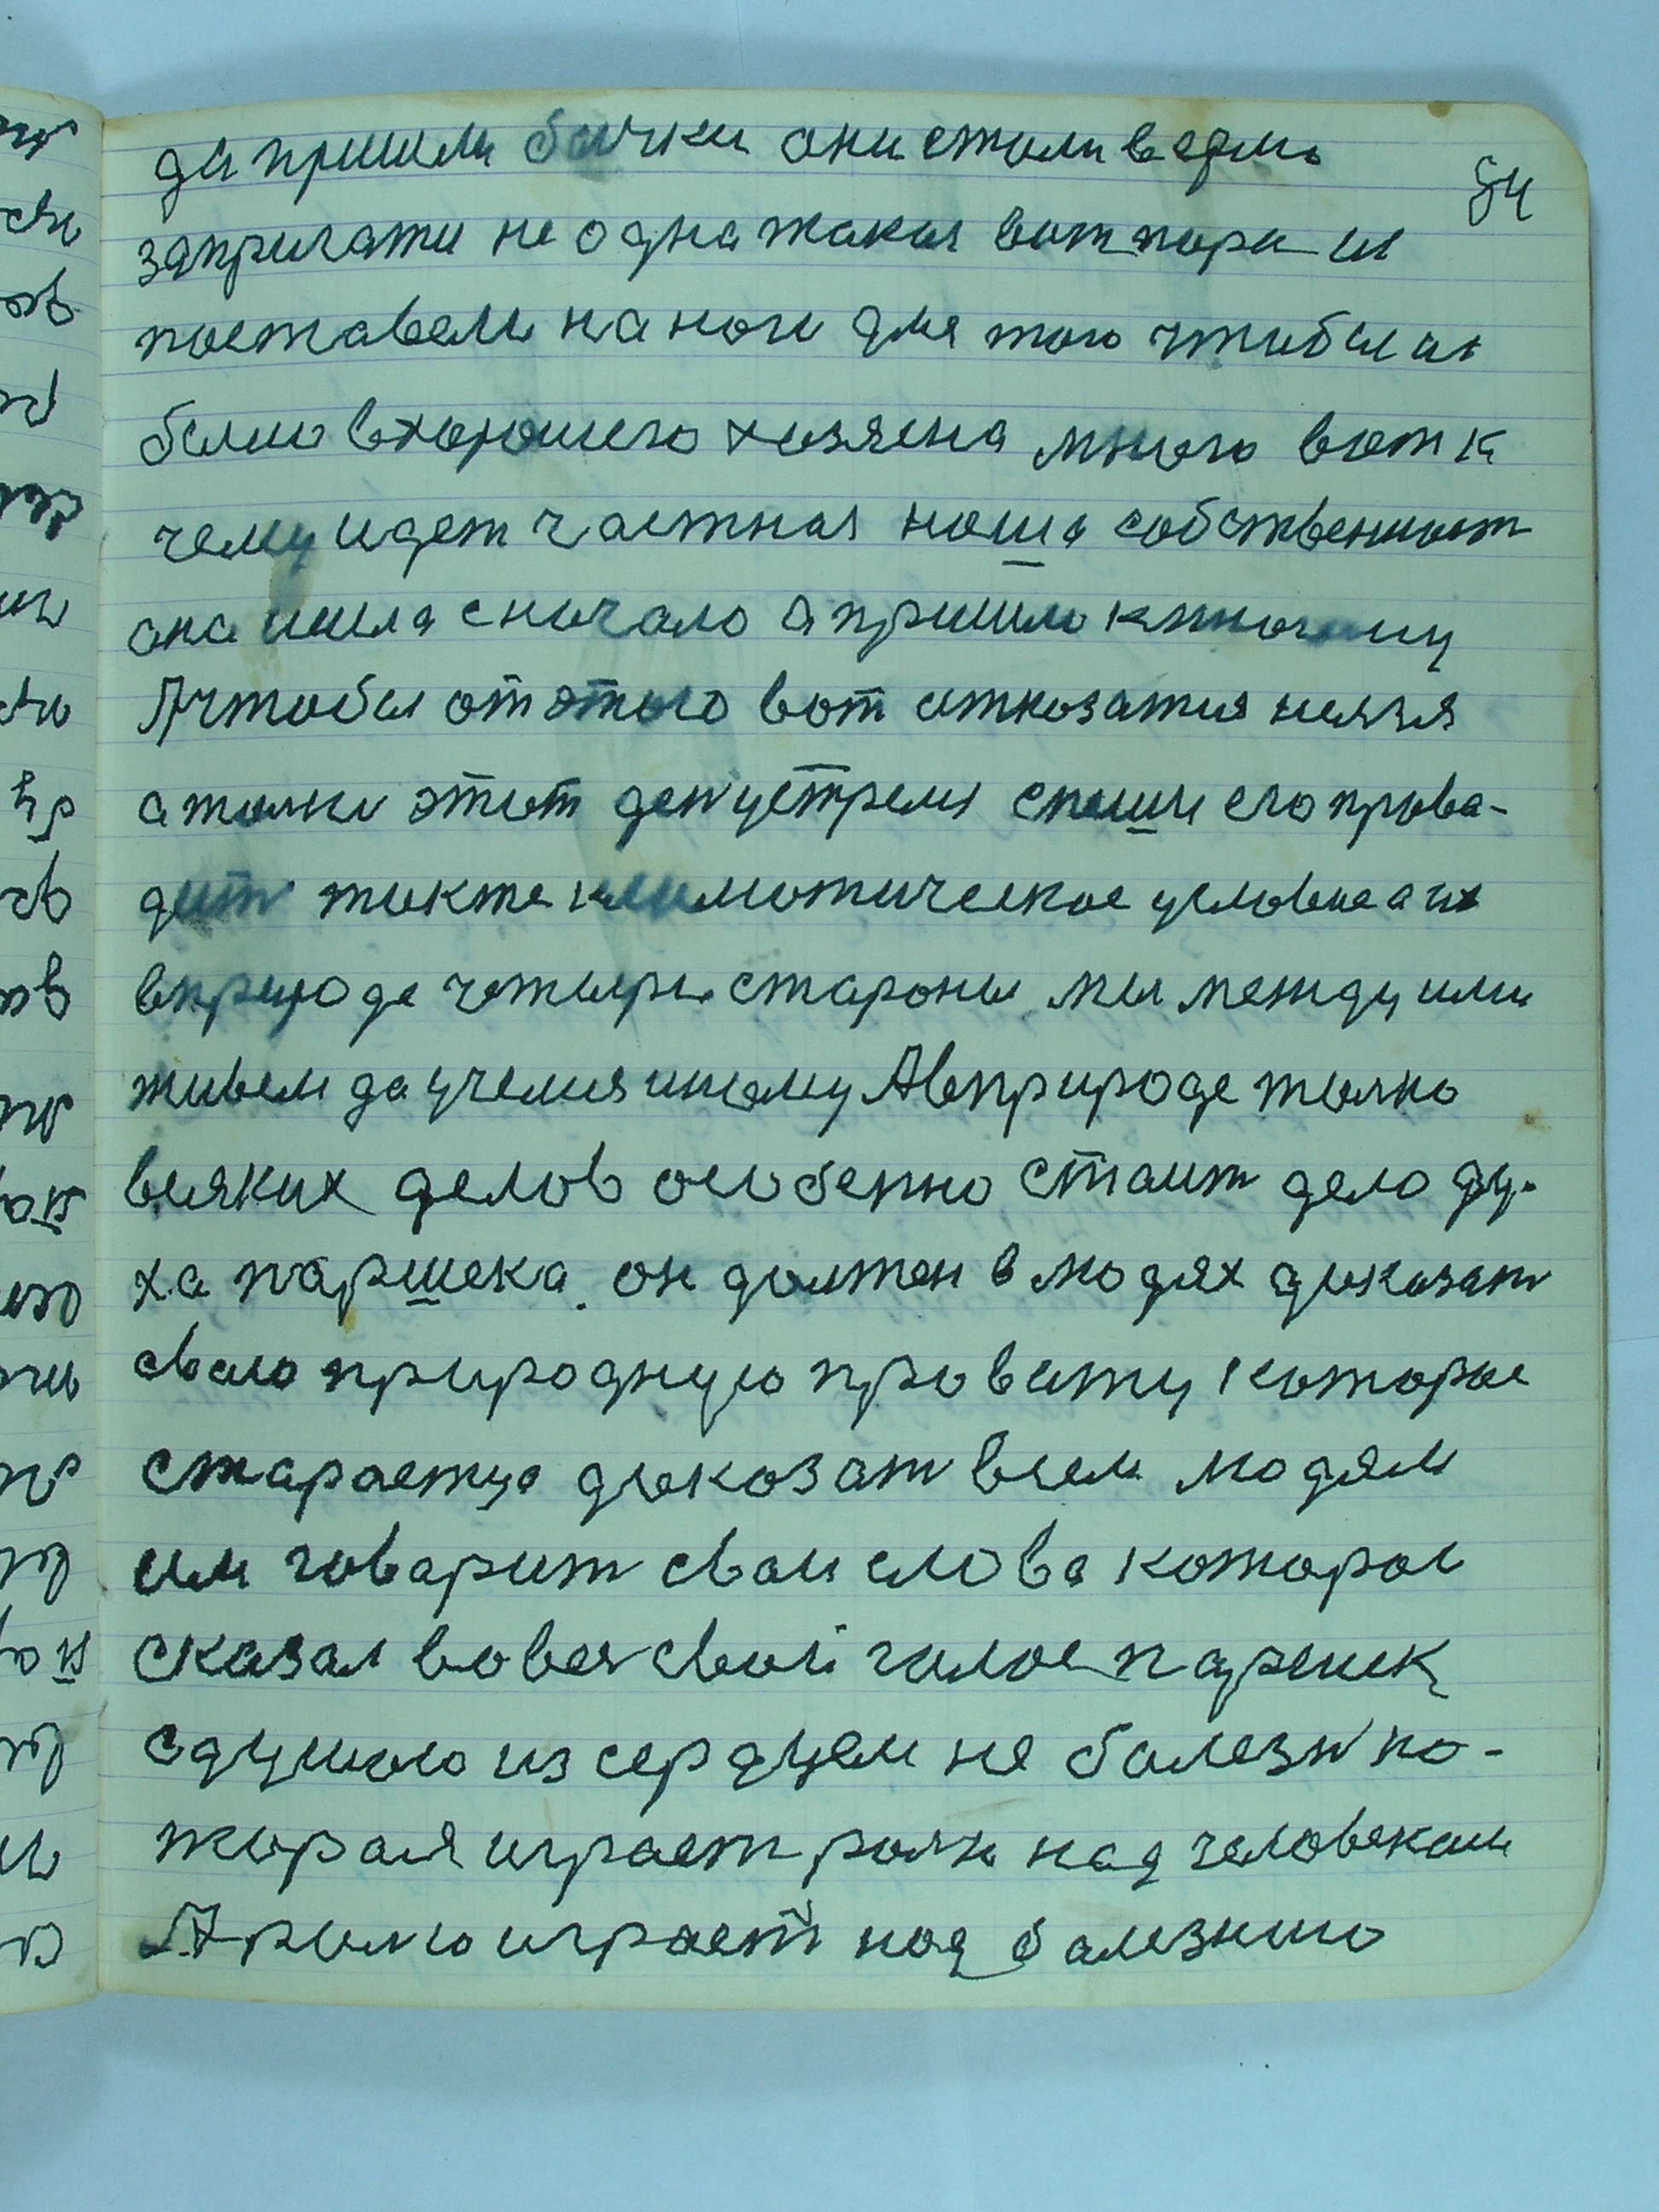 да пришли бычки они стали ведмь
84
запригати не одна такая вот пора и
поставели на ноги для того чтобы их
было в хорошего хозяена много вот к
чему идет частная наша собственност
она шла сначало а пришло к
А чтобы от этого вот отказатия незя
а толки этот ден устремя спеши его прова-
дит также климотическое условие а их
в природе четыри стороны мы между ими
живем да учемся иному А в природе толко
всяких делов особенно стаит дело ду-
ха паршека. он должен в людях доказат
сваю природную провату которые
стараетця доказат всем людям
им говарит сваи слова которые
сказал во весь свой голос паршек
с душою из сердцем не болезн ко-
торая играет ролю над человеком
А ролю играет над болезнию